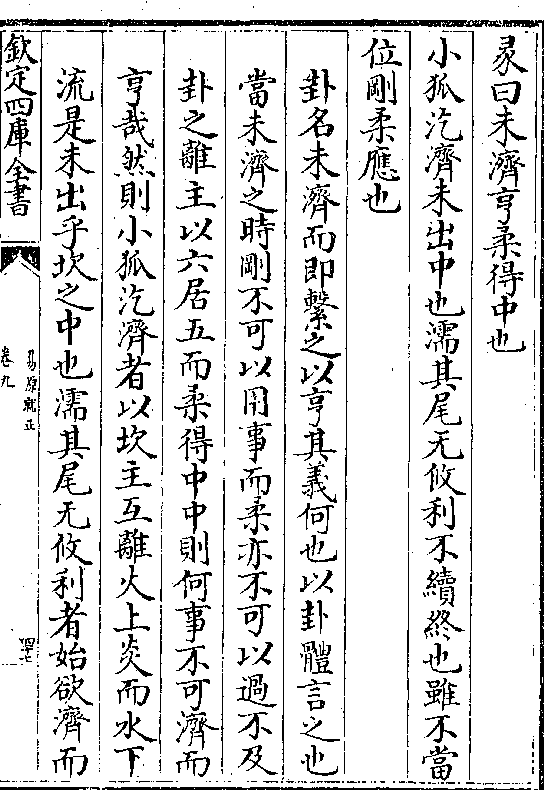 彖曰未濟亨柔得中也
小狐汔濟未出中也濡其尾无攸利不續終也雖不當
位剛柔應也
卦名未濟而即繫之以亨其義何也以卦體言之也
當未濟之時剛不可以用事而柔亦不可以過不及
卦之離主以六居五而柔得中中則何事不可濟而
亨哉然則小狐汔濟者以坎主互離火上炎而水下
流是未出乎坎之中也濡其尾无攸利者始欲濟而
欽定四庫全書
易原就正
卷九
四七